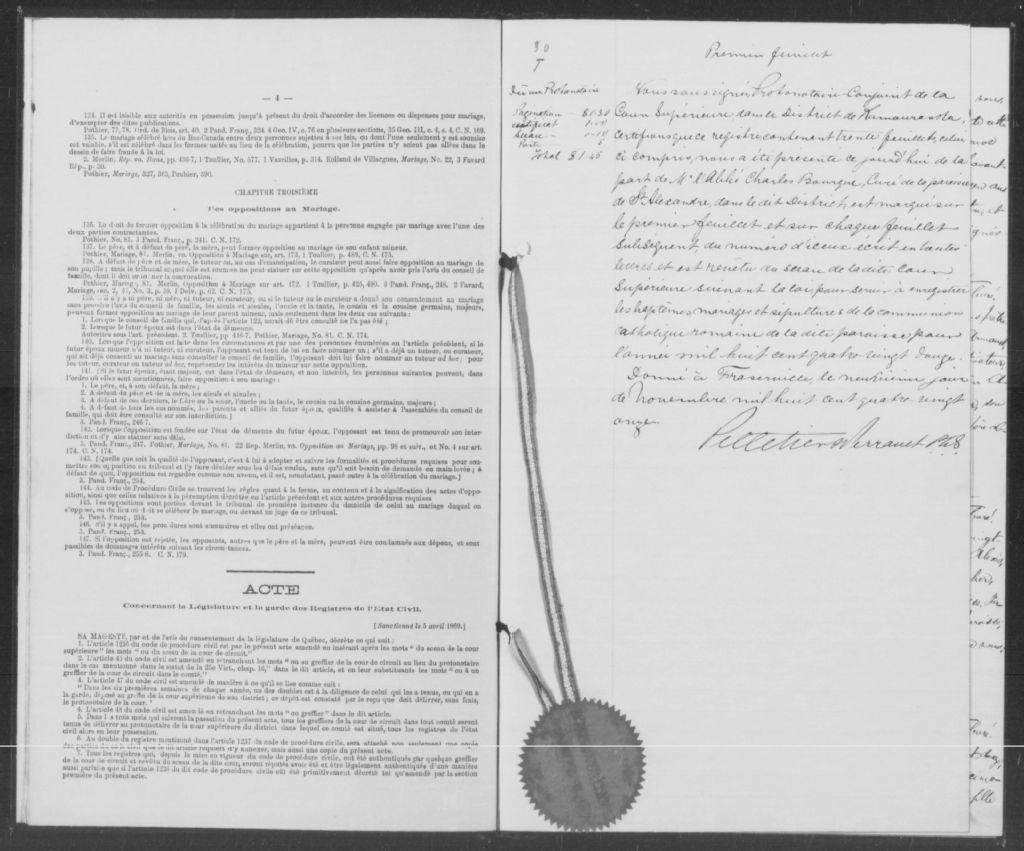 — 4 —
134. Il est loisible aux autorités en possession jusqu'à présent du droit d'accorder des licences ou dispenses pour mariage,
d'exempter des dites publications.
Pothier, 77, 78. Ord. de Blois, art. 40. 2 Pand. Franç., 324. 4 Geo. IV, c. 76 en plusieurs sections, 35 Geo. III, c. 4, s. 4, C. N. 169.
135. Le mariage célébré hors du Bas-Canada entre deux personnes sujettes à ses lois, ou dont l'une seulement y est soumise
est valable, s'il est célébré dans les formes usités au lieu de la célébration, pourvu que les parties n'y soient pas allées dans le
dessein de faire fraude à la loi.
2. Merlin, Rép. vo. Bans, pp. 436-7, 1 Toullier, No. 577, 1 Vazeilles, p. 314. Rolland de Villargues, Mariage, No. 22, 3 Favard
Rép., p. 30.
Pothier, Mariage, 327, 363, Poubier, 390.
CHAPITRE TROISIÈME
Des oppositions au Mariage.
136. Le droit de former opposition à la célébration du mariage appartient à la personne engagée par mariage avec l'une des
deux parties contractantes.
Pothier, No. 81. 3 Pand. Franç., p. 241. C. N. 172.
137. Le père, et à défaut du père, la mère, peut former opposition au mariage de son enfant mineur.
Pothier, Mariage, 81. Merlin, vo. Opposition à Mariage, sur art. 173, 1 Toullier, p. 489, C. N. 173.
138. A défaut de père et de mère, le tuteur ou, au cas d'émancipation, le curateur peut aussi faire opposition au mariage de
son pupille; mais le tribunal auquel elle est soumise ne peut statuer sur cette opposition qu'après avoir pris l'avis du conseil de
famille, dont il doit ordonner la convocation.
Pothier, Mariage, 81. Merlin, Opposition à Mariage sur art. 172. 1 Toullier, p. 425, 490. 3 Pand. Franç., 248. 2 Favard,
Mariage, sec. 2, § , No. 3, p. 59. 1 Delv. p. 62. C. N. 175.
139. S'il n'y a ni père, ni mère, ni tuteur, ni curateur, ou si le tuteur ou le curateur a donné son consentement au mariage
sans prendre l'avis du conseil de famille, les aïeuls et aïeules, l'oncle et la tante, le cousin et la cousine germains, majeurs,
peuvent former opposition au mariage de leur parent mineur, mais seulement dans les deux cas suivants:
1. Lorsque le conseil de famille qui, d'après l'article 122, aurait dû être consulté ne l'a pas été;
2. Lorsque le futur époux est dans l'état de démence.
Autorités sous l'art. précédent. 2. Toullier, pp 416-7. Pothier, Mariage, No. 81. C. N. 174.
140. Lorsque l'opposition est faite dans les circonstances et par une des personnes énumérées en l'article précédent, si le
futur époux mineur n'a ni tuteur, ni curateur, l'opposant est tenu de lui en faire nommer un; s'il a déjà un tuteur, ou curateur,
qui ait déjà consenti au mariage sans consulter le conseil de famille, l'opposant doit lui faire nommer un tuteur ad hoc; pour
les tuteur, curateur ou tuteur ad hoc, représenter les intérêts du mineur sur cette opposition.
141. [Si le futur époux, étant majeur, est dans l'état de démence, et non interdit, les personnes suivantes peuvent, dans
l'ordre où elles sont mentionnées, faire opposition à son mariage:
1. Le père, et, à son défaut, la mère;
2. A défaut du père et de la mère, les aïeuls et aïeules;
3. A défaut de ces derniers, le frère ou la sœur, l'oncle ou la tante, le cousin ou la cousine germains, majeurs;
4. A défaut de tous les sus nommés, les parents et alliés du futur époux, qualifiés à assister à l'assemblée du conseil de
famille, qui doit être consulté sur son interdiction.]
3. Pand. Franç., 246 7.
142. Lorsque l'opposition est fondée sur l'état de démence du futur époux, l'opposant est tenu de promouvoir son inter-
diction et d'y faire statuer sans délai.
3. Pand. Franç., 247. Pothier, Mariage, No. 81. 22 Rep. Merlin, vo. Opposition au Mariage, pp. 98 et suiv., et No. 4 sur art.
174. C. N. 174.
143. [Quelle que soit la qualité de l'opposant, c'est à lui à adopter et suivre les formalités et procédures requises pour sou-
mettre son opposition au tribunal et l'y faire décider sous les délais voulus, sans qu'il soit besoin de demande en main levée; à
défaut de quoi, l'opposition est regardée comme non avenu, et il est, nonobstant, passé outre à la célébration du mariage.]
3. Pand. Franç., 254.
144. Au code de Procédure Civile se trouvent les règles quant à la forme, au contenu et à la signification des actes d'oppo-
sition, ainsi que celles relatives à la péremption décrétée en l'article précédent et aux autres procédures requises
145. Les oppositions sont portées devant le tribunal de première instance du domicile de celui au mariage duquel on
s'oppose, ou du lieu où doit se célébrer le mariage, ou devant un juge de ce tribunal.
3. Pand. Franç., 253.
146. S'il y a appel, les procédures sont sommaires et elles ont préséance.
3. Pand. Franç., 253.
147. Si l'opposition est rejetée, les opposants, autres que le père et la mère, peuvent être condamnés aux dépens, et sont
passibles de dommages intérêts suivant les circonstances.
3. Pand. Franç., 255-8. C. N. 179.
ACTE
Concernant la Législature et la garde des Registres de l'Etat Civil.
[Sanctionné le 5 avril 1869.]
SA MAGESTÉ, par et de l'avis du consentement de la législature de Québec, décrète ce qui suit:
1. L'article 1236 du code de procédure civil est par le présent acte amendé en insérant après les mots "du sceau de la cour
supérieure" les mots "ou du sceau de la cour de circuit."
2. L'article 45 du code civil est amendé en retranchant les mots "ou au greffier de la cour de circuit au lieu du protonotaire
dans le cas mentionné dans le statut de la 25e Vict., chap. 16," dans le dit article, et en leur substituants les mots "ou à un
greffier de la cour de circuit dans le comté."
4. L'article 47 du code civil est amendé de manière à ce qu'il se lise comme suit:
"Dans les six premières semaines de chaque année, un des doubles est à la diligence de celui qui les a tenus, ou qui en a
la garde, déposé au greffe de la cour supérieure de son district; ce dépôt est constaté par le reçu que doit délivrer, sans frais,
le protonotaire de la cour."
4. L'article 48 du code civil est amendé en retranchant les mots "ou greffier" dans le dit article.
5. Dans les trois mois qui suivront la passation du présent acte, tous les greffiers de la cour de circuit dans tout comté seront
tenus de délivrer au protonotaire de la cour supérieure du district dans lequel ce comté est situé, tous les registres de l'état
civil alors en leur possession.
6. Au double du registre mentionné dans l'article 1237 du code de procédure civile, sera attaché non seulement une copie
des parties du code civil que le dit article requiert d'y annexer, mais aussi une copie du présent acte.
7. Tous les registres qui, depuis la mise en vigueur du code de procédure civile, ont été authentiqués par quelque greffier
de la cour de circuit et revêtu du sceau de la dite cour, seront réputés avoir été et être légalement authentiqués d'une manière
aussi parfaite que si l'article 1236 du dit code de procédure civile eut été primitivement décrété tel qu'amendé par la section
première du présent acte.
30
T
Premier feuillet
Dû au Protonotaire
Pagination — $0.30
certificat 1.00
Sceau — 0.10
Total $1.45
Nous soussigné, Protonotaire Conjoint de la
Cour Supérieure, dans le District de Kamouraska,
certifions que ce registre contenant trente feuillets, celui
ci compris, nous a été présenté ce jourd'hui de la
part de Mr l'Abbé Charles Bourque, Curé de la paroisse
de St Alexandre, dans le dit District, est marqué sur
le premier feuillet et sur chaque feuillet
Subséquent, du numéro d'iceux écrit en toutes
lettres et est revêtu du sceau de la dite Cour
Supérieure suivant la loi, pour servir à enregistrer
les baptêmes, mariages et sépultures de la communion
Catholique romaine de la dite paroisse pour
l'année mil huit cent quatre vingt douze.
Donné à Fraserville, le neuvième jour
de Novembre mil huit cent quatre vingt
onze.
Pelletier & Perrault PCS